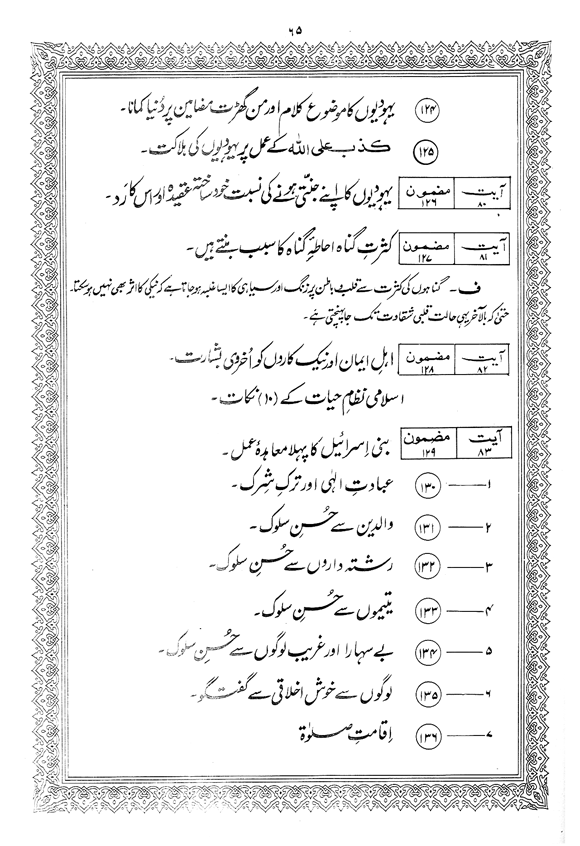 ۶۵
(۱۲۴) یہودیوں کا موضوع کلام اور من گھڑت مضامین پر دُنیا کمانا۔
(۱۲۵) کذب علی اللہ کے عمل پر یہودیوں کی ہلاکت۔
آیت ۸۰ مضمون ۱۲۶ یہودیوں کا اپنے جنتی ہونے کی نسبت خود ساختہ عقیدہ اور اس کا رَد۔
آیت ۸۱ مضمون ۱۲۷ کثرتِ گناہ احاطۂ گناہ کا سبب بنتے ہیں۔
ف۔ گناہوں کی کثرت سے قلب باطن پر زنگ اور سیاہی کا ایسا غلبہ ہو جاتا ہے کہ نیکی کا اثر بھی نہیں ہو سکتا۔
حتیٰ کہ بالآخر یہی حالت قلبی شقاوت تک جا پہنچتی ہے۔
آیت ۸۲ مضمون ۱۲۸ اہلِ ایمان اور نیک کاروں کو اُخروی بشارت۔
اسلامی نظامِ حیات کے (۱۰) نکات۔
آیت ۸۳ مضمون ۱۲۹ بنی اِسرائیل کا پہلا معاہدۂ عمل۔
۱—— (۱۳۰) عبادتِ الٰہی اور ترکِ شِرک۔
۲—— (۱۳۱) والدین سے حُسنِ سلوک۔
۳—— (۱۳۲) رشتہ داروں سے حُسنِ سلوک۔
۴—— (۱۳۳) یتیموں سے حُسنِ سلوک۔
۵—— (۱۳۴) بے سہارا اور غریب لوگوں سے حُسنِ سلوک۔
۶—— (۱۳۵) لوگوں سے خوش اخلاقی سے گفتگو۔
۷—— (۱۳۶) اِقامتِ صلوٰۃ